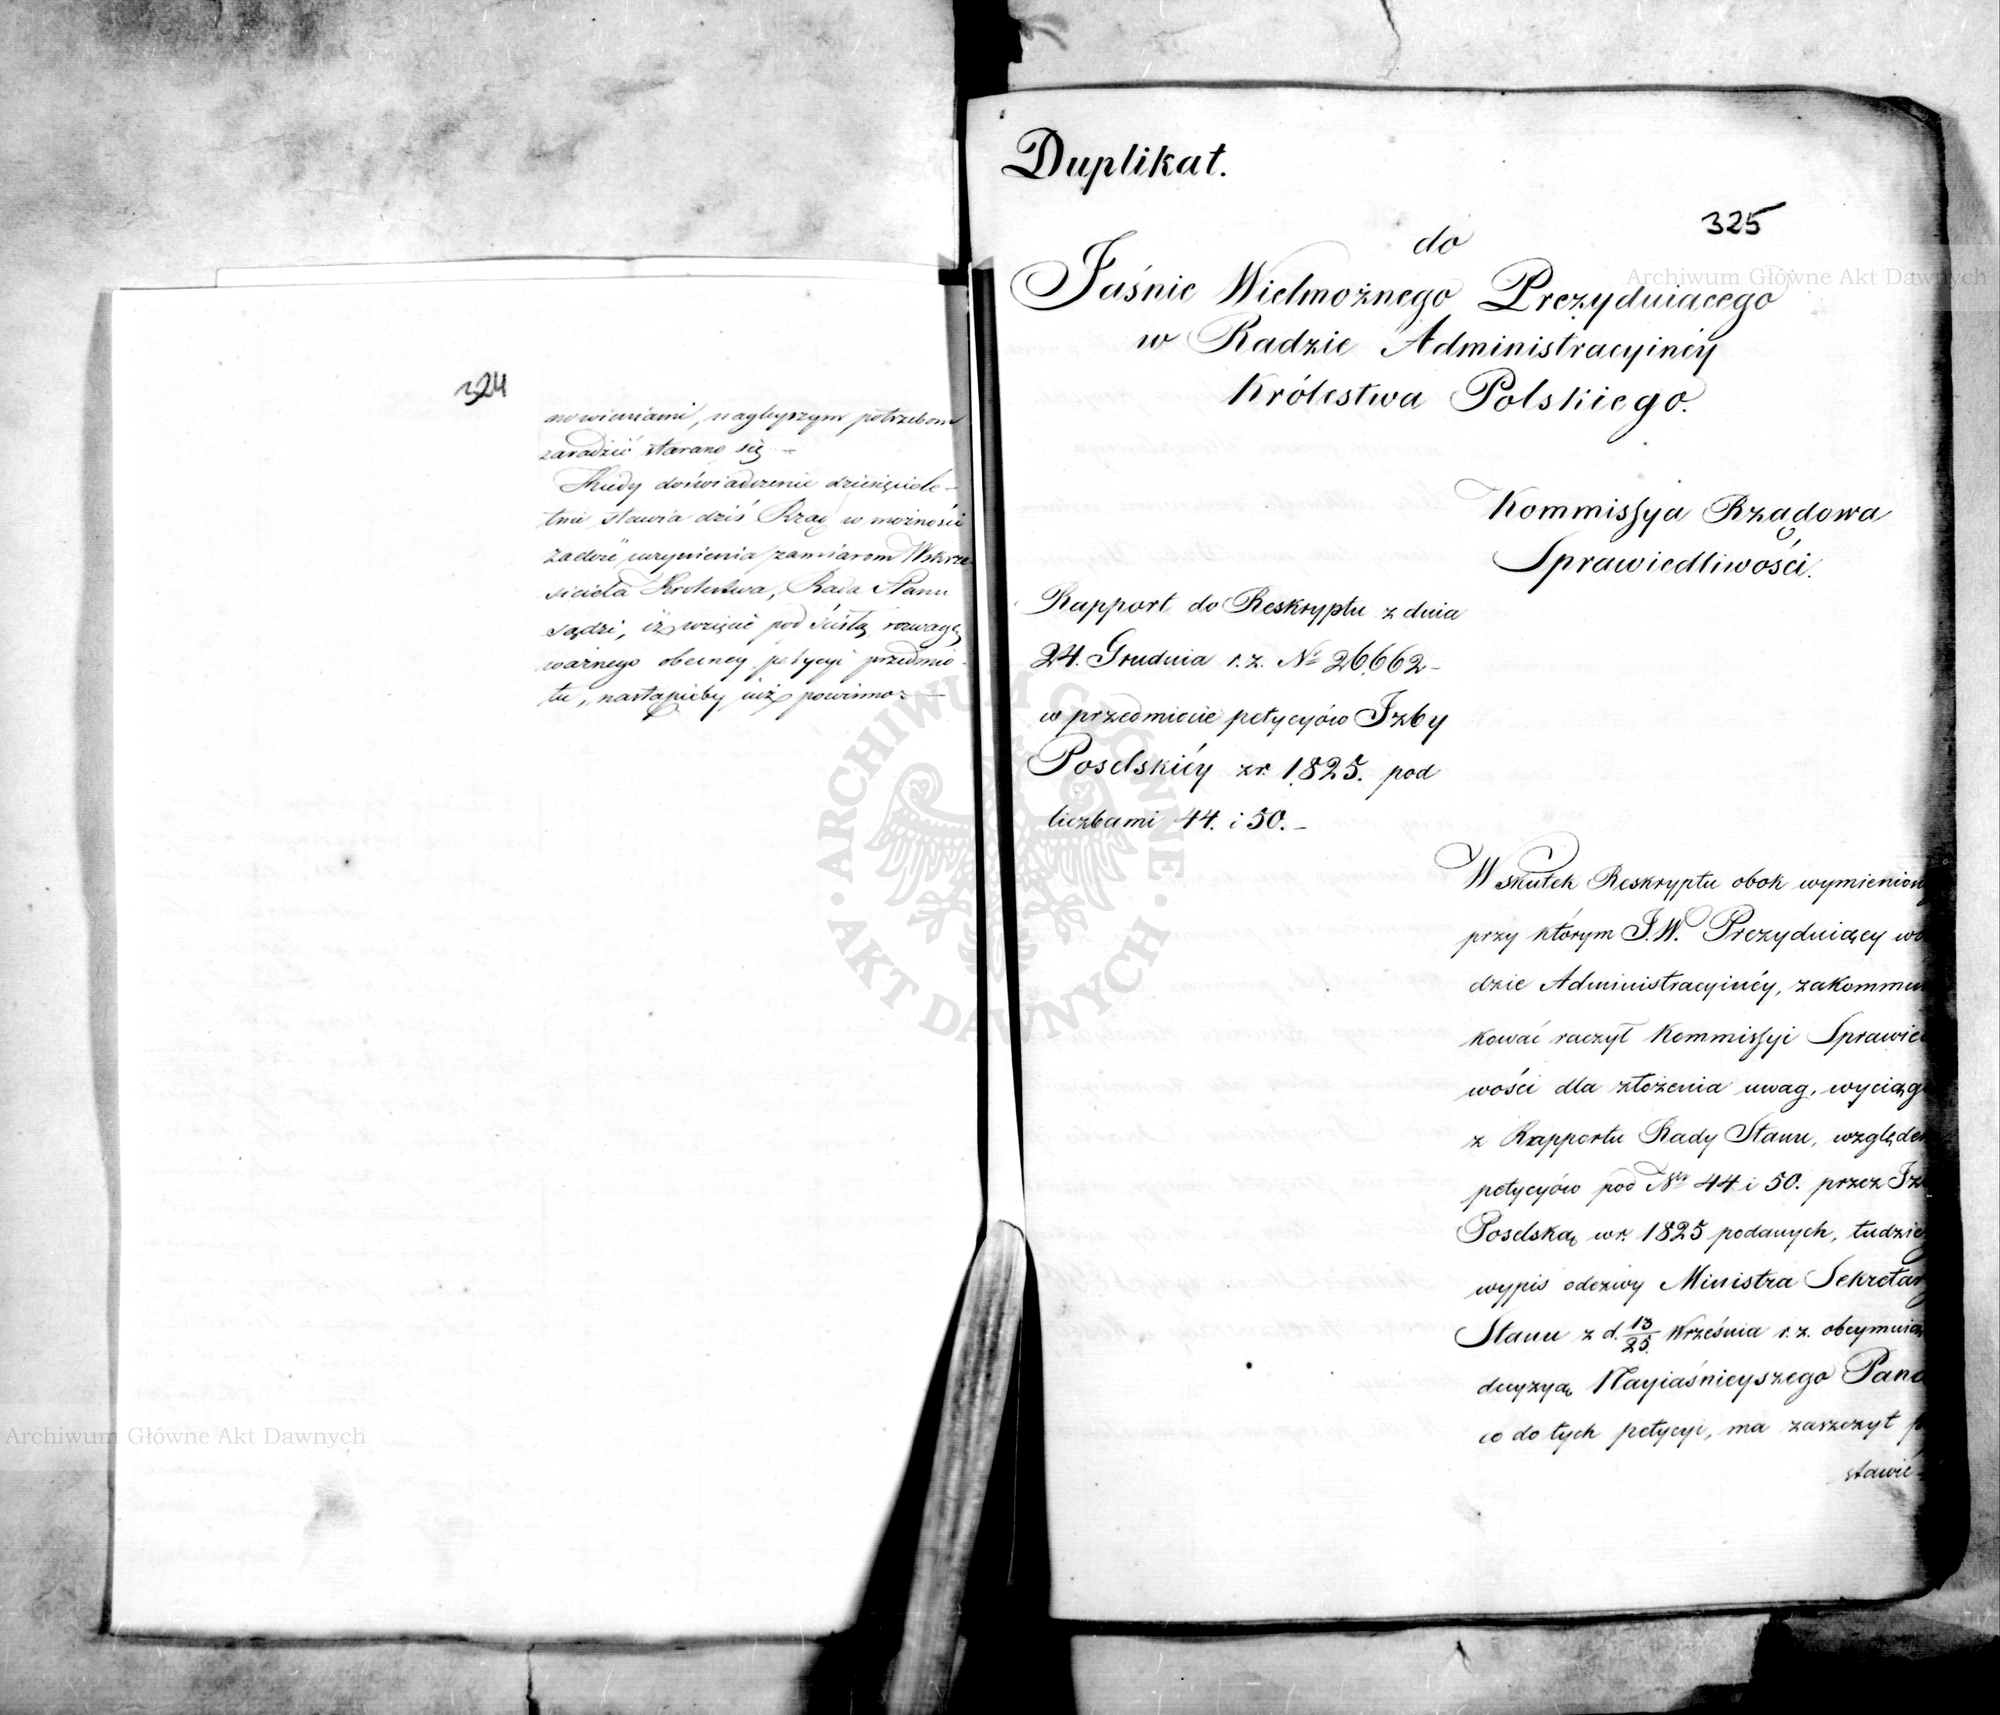 324
nowieniami, naglejszym potrzebom
zaradzić starano się. —
Kiedy doświadczenie dziesięciole-
tnie stawia dziś Rząd w możności
zadość uczynienia zamiarom Wskrze-
siciela Królestwa, Rada Stanu
sądzi, iż wzięcie pod ścisłą rozwagę
ważnego obecney petycyi przedmio-
tu, nastąpićby iuż powinno. —
Duplikat.
325
do
Jaśnie Wielmożnego Prezyduiącego
w Radzie Administracyinéy
Królestwa Polskiego.
Kommissya Rządowa
Sprawiedliwości.
Rapport do Reskryptu z dnia
24. Grudnia r. z. № 26,662 —
w przedmiocie petycyów Izby
Poselskiéy z r. 1825. pod
liczbami 44. i 50. —
W skutek Reskryptu obok wymienion
przy którym J.W. Prezyduiący w
dzie Administracyinéy, zakommu
kować raczył Kommissyi Sprawied
wości dla złożenia uwag, wyciąg
z Rapportu Rady Stanu, względem
petycyów pod Nrs 44 i 50. przez Iz
Poselską w r. 1825 podanych, tudzie
wypis odezwy Ministra Sekretar
Stanu z d. 13/25. Września r. z. obeymuią
decyzyą Nayiaśnieyszego Pana
co do tych petycyi, ma zaszczyt p
stawie-
Archiwum Główne Akt Dawnych
Archiwum Główne Akt Dawnych
· ARCHIWUM GŁÓWNE · AKT DAWNYCH